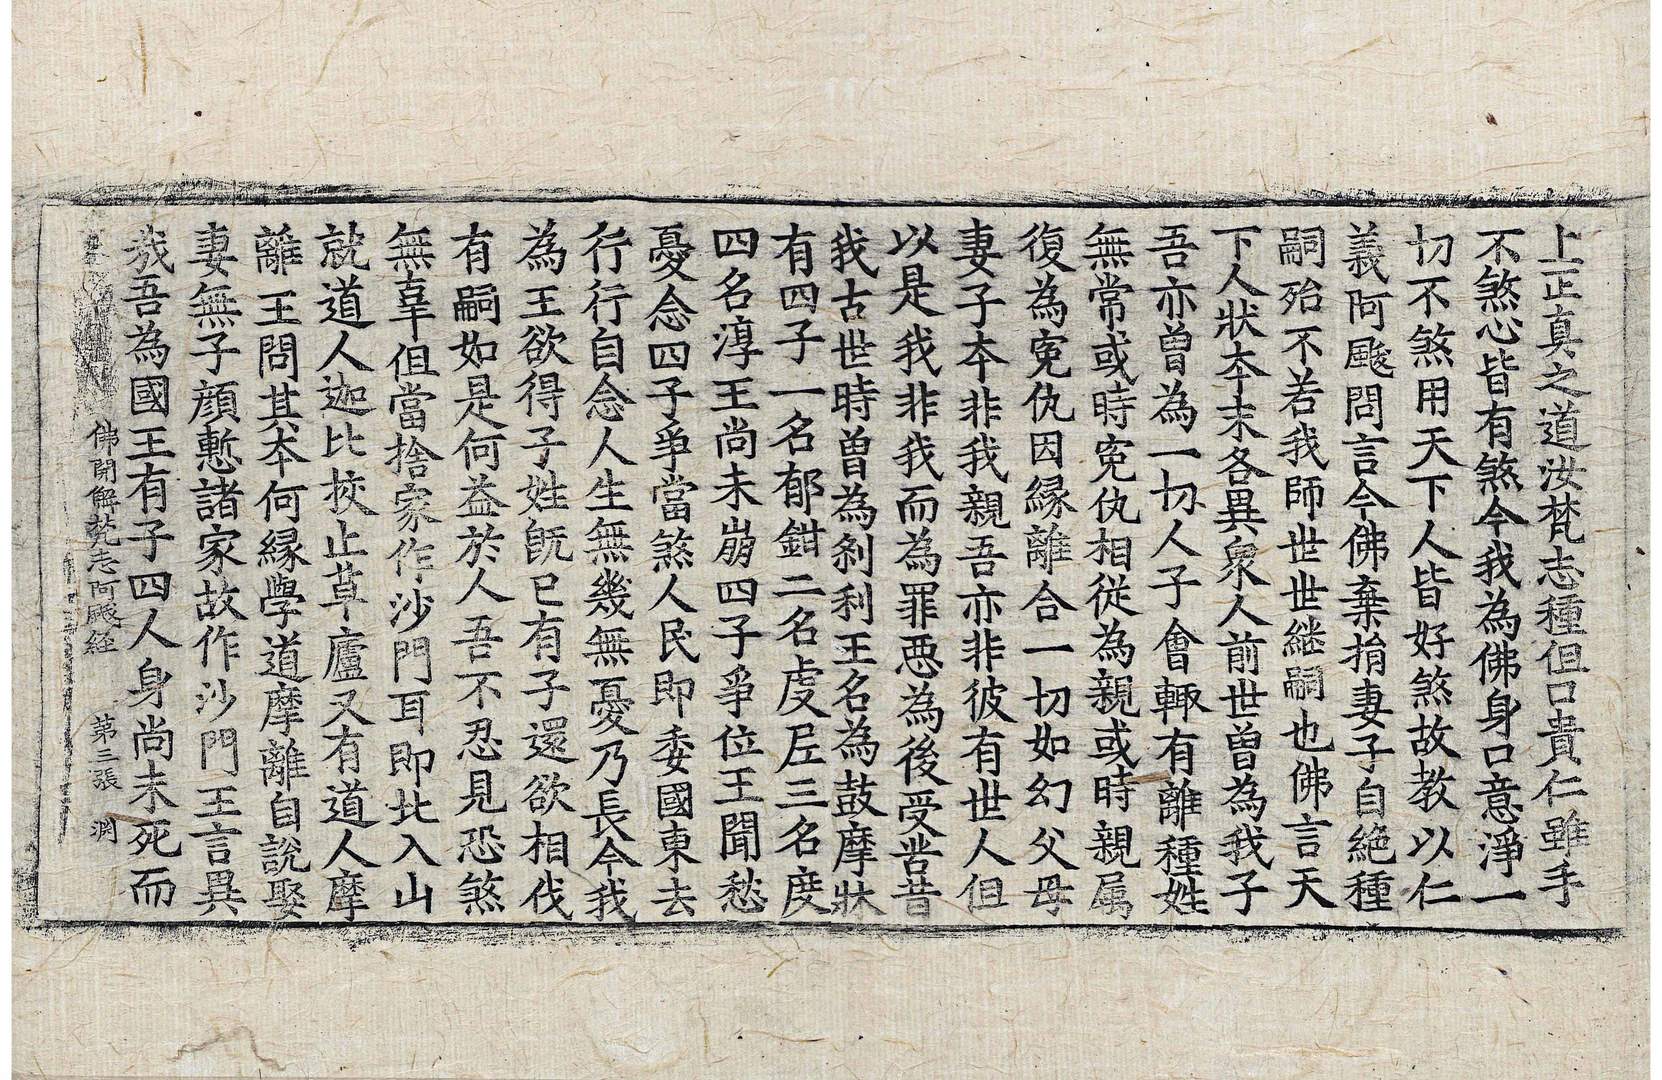 上正真之道汝梵志種但口貴仁雖手
不煞心皆有煞今我為佛身口意淨一
切不煞用天下人皆好煞故教以仁
義阿颰問言今佛棄捐妻子自絕種
嗣殆不若我師世世継嗣也佛言天
下人狀夲末各異衆人前世曾為我子
吾亦曾為一切人子會輙有離種姓
無常或時寃仇相從為親或時親属
復為寃仇因縁離合一切如幻父母
妻子夲非我親吾亦非彼有世人但
以是我非我而為罪惡為後受甞昔
我古世時曾為剎利王名為鼓摩狀
有四子一名郁鉗二名虔𡰱三名度
四名淳王尚未崩四子爭位王聞愁
憂念四子爭當煞人民即委國東去
行行自念人生無幾無憂乃長今我
為王欲得子姓旣已有子還欲相伐
有嗣如是何益於人吾不忍見恐煞
無辜但當捨家作沙門耳即北入山
就道人迦比挍止草廬又有道人摩
離王問其夲何縁學道摩離自說娶
妻無子顔慙諸家故作沙門王言異
哉吾為國王有子四人身尚未死而
佛開解梵志阿颰経 第三張 渕